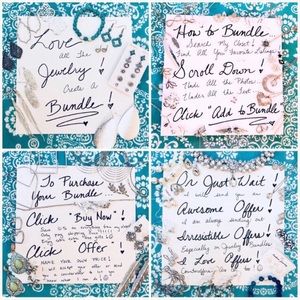 Love
All The
Jewelry!
Create A
Bundle!
How to Bundle
Search My Closet!
Find All Your Favorite
Scroll Down!
Under All The Photos
Under All The Text
Click "Add to Bundle"
To Purchase
Your Bundle
Click "Buy Now"!
Click Offer!
Make Your Own Price!
Or Just Wait!
I will send you an
Awesome Offer!
I am always sending out
Irresistible Offers!
Especially on Jewelry Bundles
I Love Offers!